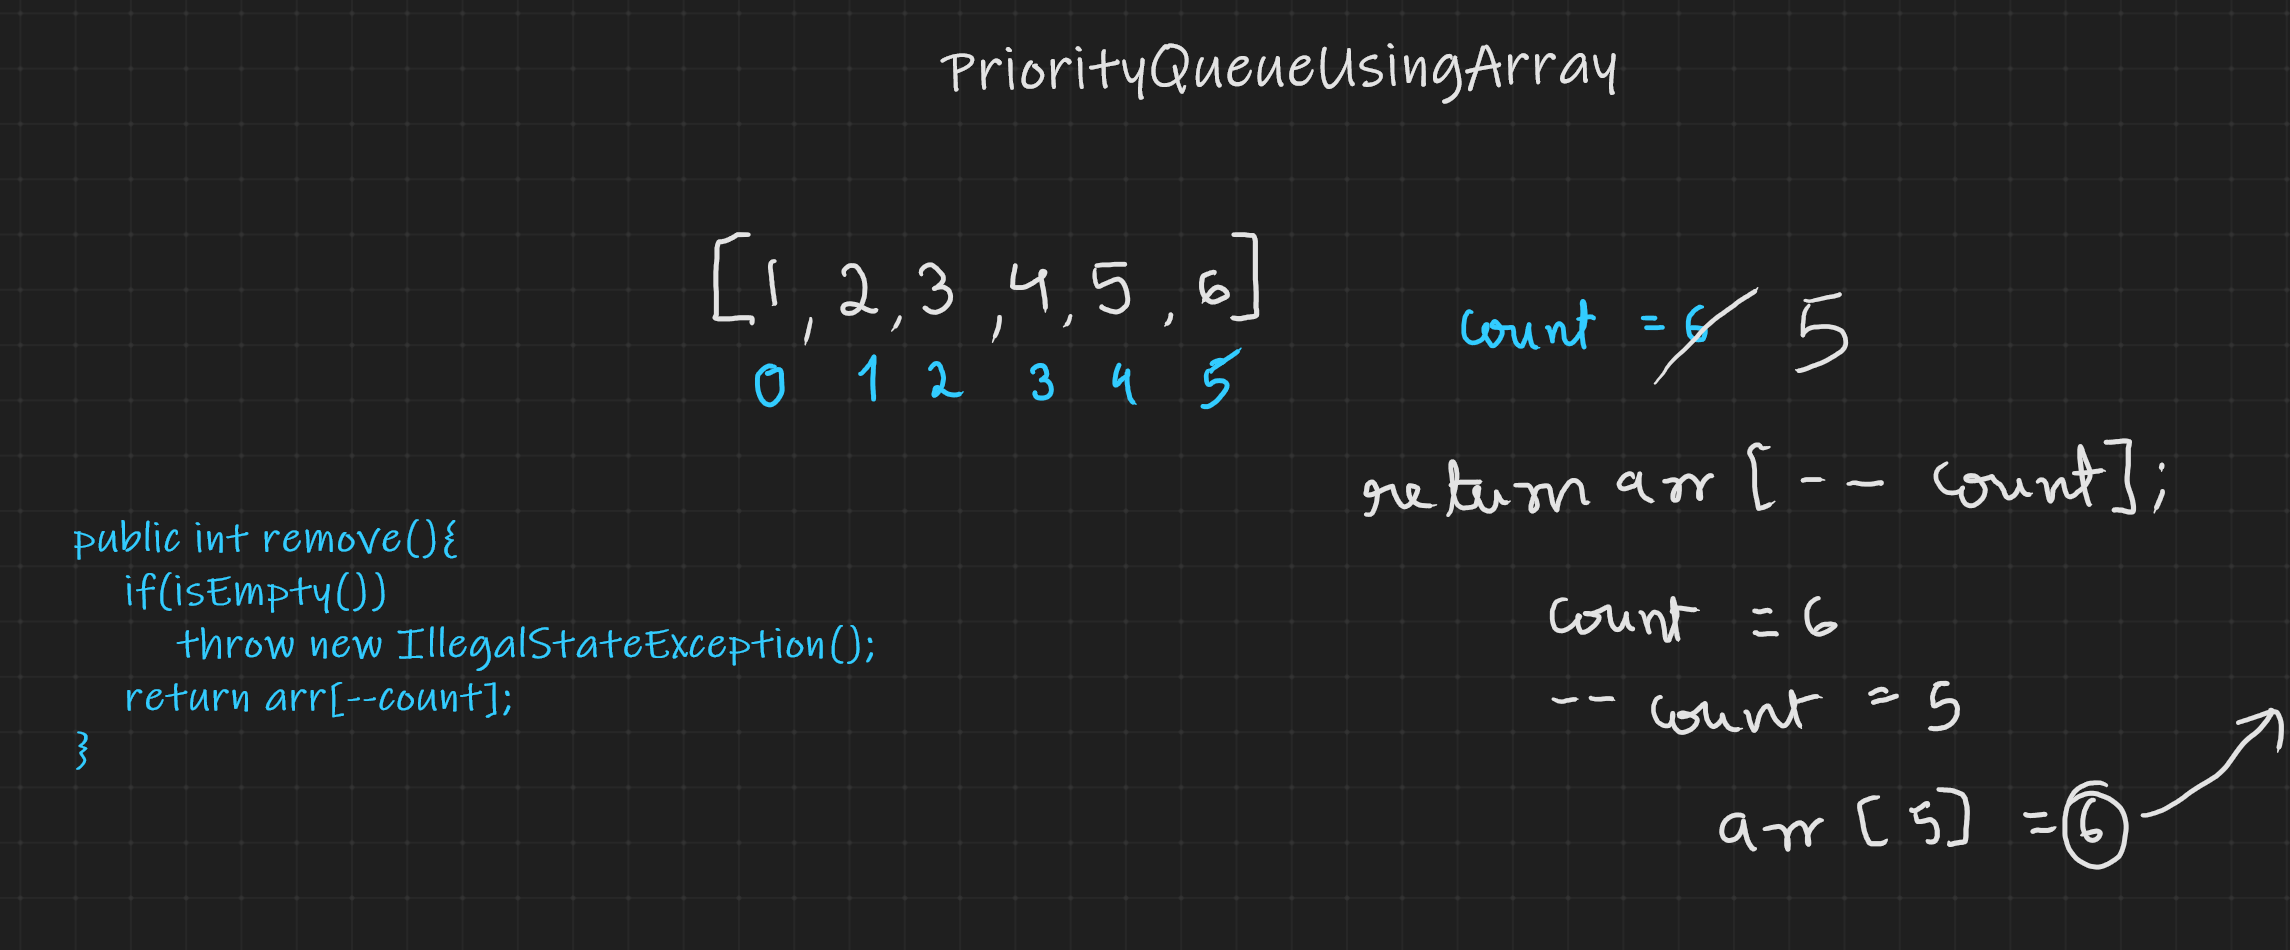 PriorityQueueUsingArray
[1, 2, 3, 4, 5, 6]
0 1 2 3 4 5
count = 6 5
return arr [-- count];
count = 6
-- count = 5
arr [5] = 6
public int remove(){
if(isEmpty())
throw new IllegalStateException();
return arr[--count];
}